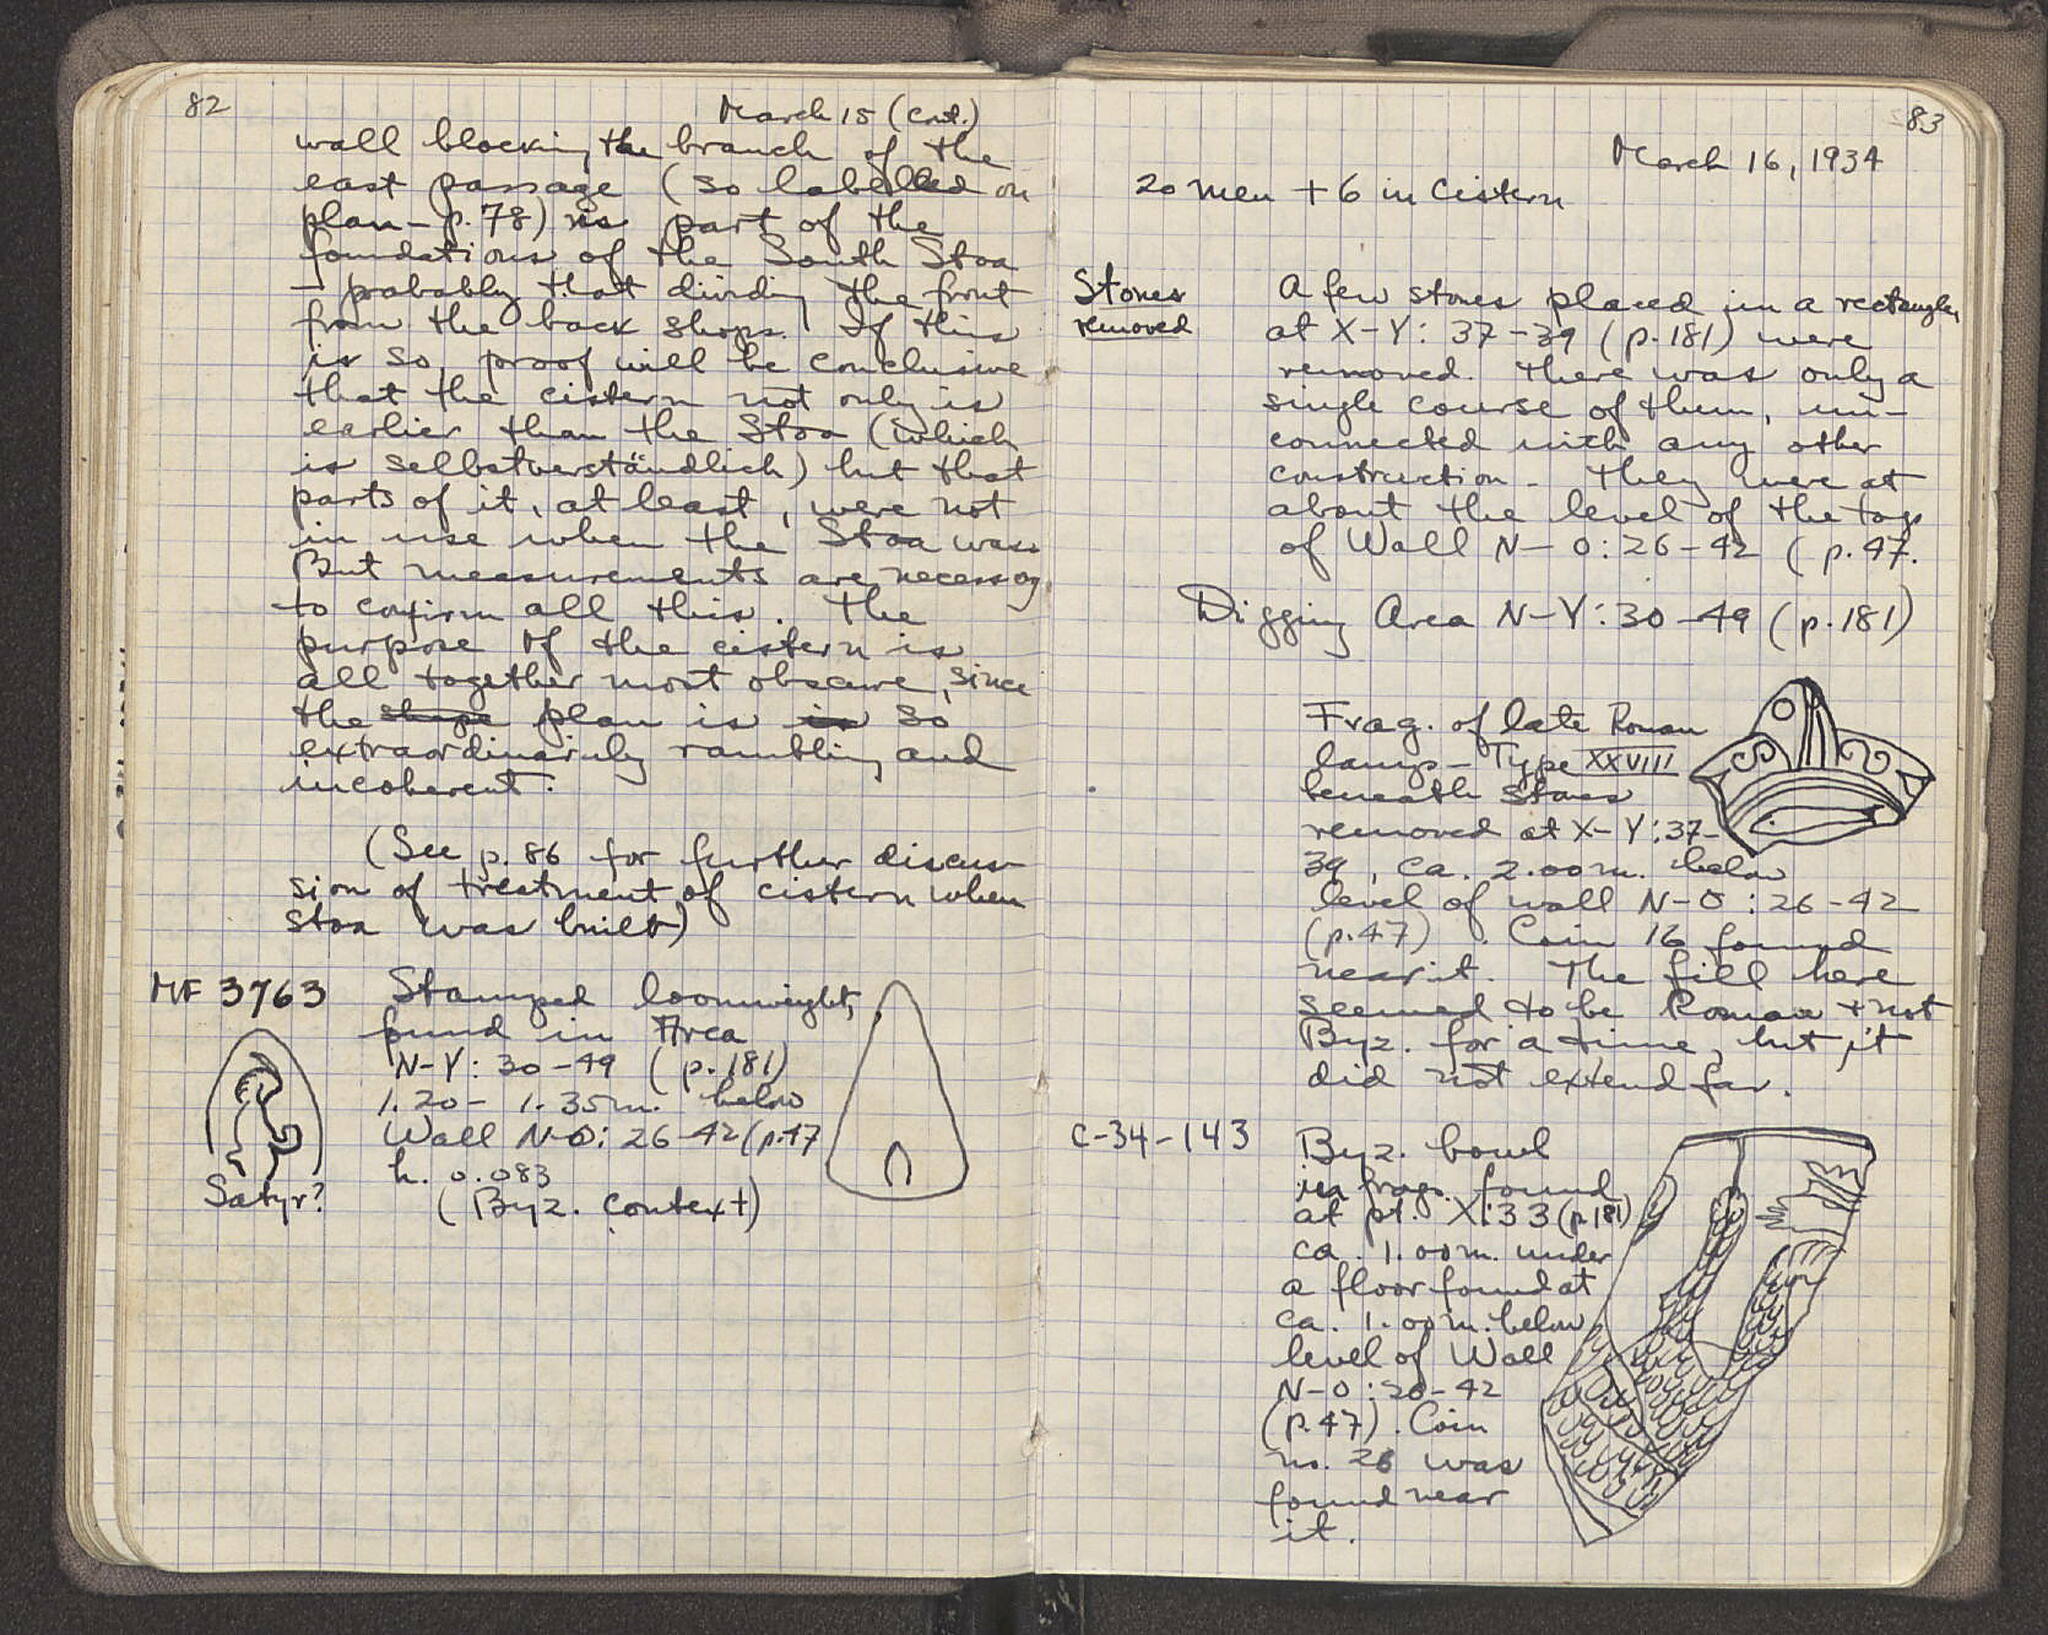 82
March 15 (Cont.)
wall blocking the branch of the
east passage (so labelled on
plan - p. 78) is part of the
foundations of the South Stoa
- probably that dividing the front
from the back shops. If this
is so, proof will be conclusive
that the cistern not only is
earlier than the Stoa (which
is selbstverständlich) but that
parts of it, at least, were not
in use when the Stoa was.
But measurements are necessary
to confirm all this. The
purpose of the cistern is
all together most obscure, since
the shape plan is is so
extraordinarily rambling and
incoherent.
(See p. 86 for further discus-
sion of treatment of cistern when
stoa was built)
MF 3763
Stamped loomweight,
found in Area
N-Y: 30-49 (p. 181)
1.20 - 1.35 m. below
Wall N-O: 26-42 (p. 47
h. 0.083
(Byz. context)
Satyr?
83
March 16, 1934
20 men + 6 in Cistern
Stones
removed
A few stones placed in a rectangle,
at X-Y: 37-39 (p. 181) were
removed. There was only a
single course of them, un-
connected with any other
construction. They were at
about the level of the top
of Wall N-O: 26-42 (p. 47.
Digging Area N-Y: 30-49 (p. 181)
Frag. of late Roman
lamp - Type XXVIII
beneath stones
removed at X-Y: 37-
39, ca. 2.00 m. below
level of wall N-O: 26-42
(p. 47). Coin 16 found
near it. The fill here
seemed to be Roman + not
Byz. for a time, but it
did not extend far.
C-34-143
Byz. bowl
in frags. found
at pt. X:33 (p. 181)
ca. 1.00 m. under
a floor found at
ca. 1.00 m. below
level of Wall
N-O: 26-42
(p. 47). Coin
no. 26 was
found near
it.